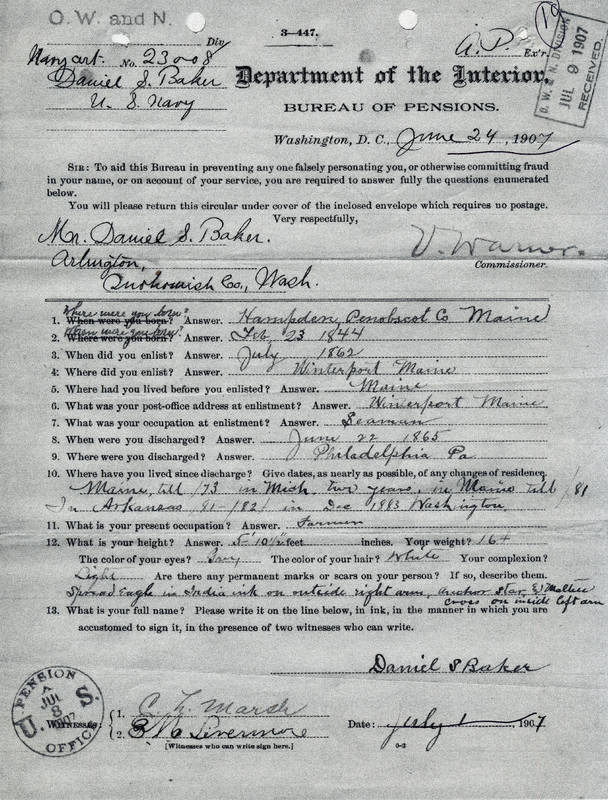 O. W. and N.
Div.
3-447.
A. P. Ex'r.
O. W. & N. DIVISION
JUL 9 1907
RECEIVED
Navy
No. 23008
Daniel S. Baker
U. S. Navy
Department of the Interior,
BUREAU OF PENSIONS.
Washington, D. C., June 24, 1907
SIR: To aid this Bureau in preventing any one falsely personating you, or otherwise committing fraud
in your name, or on account of your service, you are required to answer fully the questions enumerated
below.
You will please return this circular under cover of the inclosed envelope which requires no postage.
Very respectfully,
Mr. Daniel S. Baker.
V. Warner.
Arlington,
Commissioner.
Snohomish Co., Wash.
Where were you born?
1. When were you born? Answer. Hampden Penobscot Co Maine
When were you born?
2. Where were you born? Answer. Feb 23 1844
3. When did you enlist? Answer. July 1862
4. Where did you enlist? Answer. Winterport Maine
5. Where had you lived before you enlisted? Answer. Maine
6. What was your post-office address at enlistment? Answer. Winterport Maine
7. What was your occupation at enlistment? Answer. Seaman
8. When were you discharged? Answer. June 22 1865
9. Where were you discharged? Answer. Philadelphia Pa
10. Where have you lived since discharge? Give dates, as nearly as possible, of any changes of residence.
Maine, till /73 in Mich. two years, in Maine till /81
In Arkansas /81-/82/ in Dec 1883 Washington
11. What is your present occupation? Answer. Farmer
12. What is your height? Answer. 5-10½ feet inches. Your weight? 164
The color of your eyes? Gray The color of your hair? White Your complexion?
Light Are there any permanent marks or scars on your person? If so, describe them.
Spread Eagle in India ink on outside right arm, anchor star & Maltese
cross on inside left arm
13. What is your full name? Please write it on the line below, in ink, in the manner in which you are
accustomed to sign it, in the presence of two witnesses who can write.
Daniel S Baker
PENSION OFFICE
U. S.
JUL 8 1907
Witnesses: 1. C. L. Marsh
2. E M Livermore
[Witnesses who can write sign here.]
Date: July 1, 1907
6-2